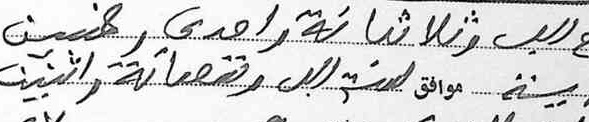 الف وثلاثمائة واحدى وخمسين
سنة موافق لسنة الف وتسعمائة واثنين